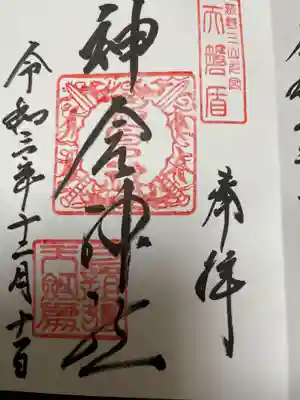 熊野三山元宮
天磐盾
奉拝
神倉神社
令和三年十二月十一日